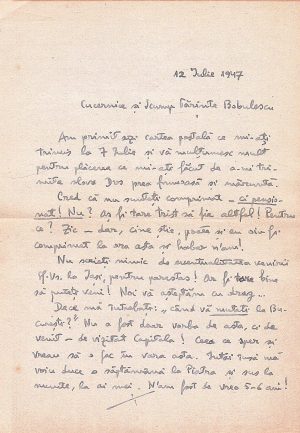 12 Iulie 1947
Cucernice și Scump Părinte Bobulescu
Am primit azi cartea poștală ce mi-ați
trimis la 7 Iulie și vă mulțumesc mult
pentru plăcerea ce mi-ați făcut de a-mi tri-
mite slova Dvs prea frumoasă și măruntă.
Cred că nu sunteți comprimat – ci pensio-
nat! Nu? Aș fi tare trist să fie altfel! Pentru
ce? Zic – dar, cine știe, poate și eu oiu fi
comprimat la ora asta și habar n'am!
Nu scrieți nimic de eventualitatea venirii
la Iași, pentru parastas! Ar fi tare bine
să puteți veni! Noi vă așteptăm cu drag...
Dece mă întrebați: „când vă mutați la Bu-
curești?" Nu a fost doar vorba de asta, ci de
venit – de vizitat Capitala! Ceea ce sper și
vreau să o fac în vara asta. Întâi însă mă
voiu duce o săptămână la Piatra și sus la
munte, la ai mei. N'am fost de vreo 5-6 ani!